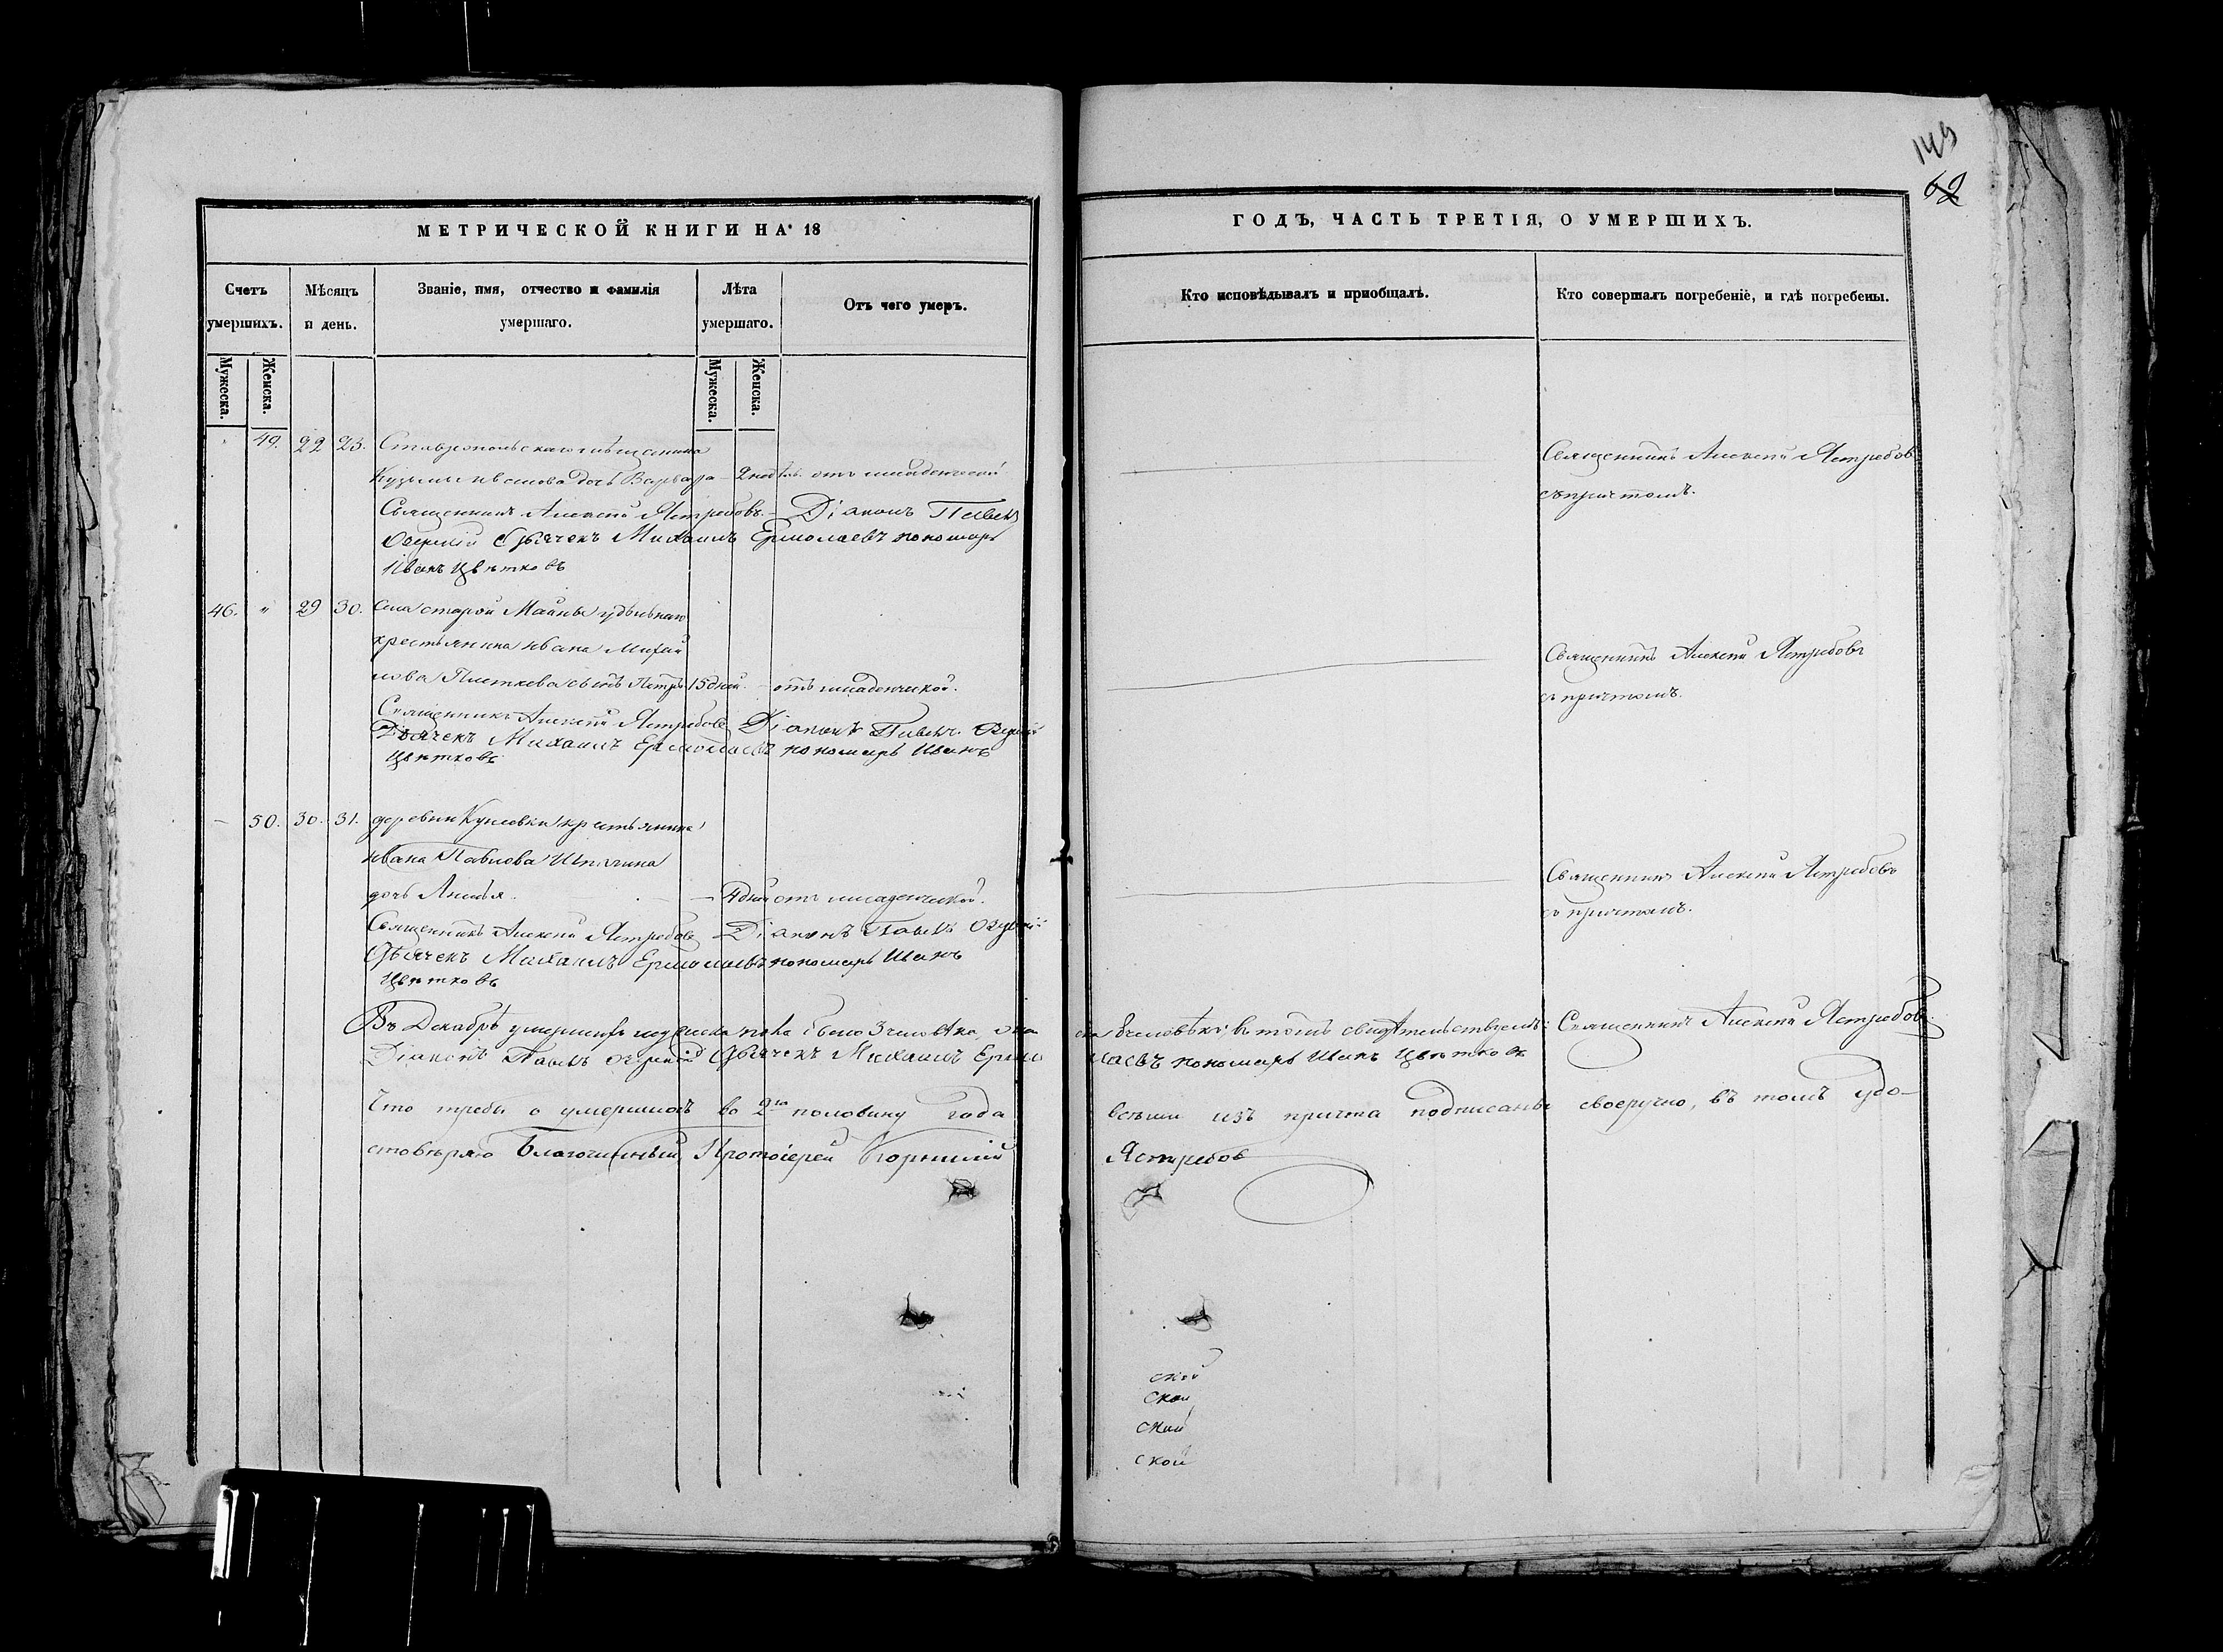 149
62
МЕТРИЧЕСКОЙ КНИГИ НА 18
ГОДЪ, ЧАСТЬ ТРЕТІЯ, О УМЕРШИХЪ.
Счетъ умершихъ.
Мѣсяцъ и день.
Званіе, имя, отчество и фамилія умершаго.
Лѣта умершаго.
Отъ чего умеръ.
Кто исповѣдывалъ и приобщалъ.
Кто совершалъ погребеніе, и гдѣ погребены.
Мужеска.
Женска.
Мужеска.
Женска.
49. 22 23. Ставропольскаго мѣщанина
Кузьмы дочь Варвара 2 отъ младенческой
Священникъ Алексѣй Ястребовъ
съ причтомъ.
Священникъ Алексѣй Ястребовъ. Діаконъ Павелъ
Озерскій Дьячекъ Михаилъ Ермолаевъ пономарь
Иванъ Цвѣтковъ
46. " 29 30. Села старой Майны удѣльнаго
крестьянина Ивана Михай
лова сынъ Петръ 15 дней. отъ младенческой.
Священникъ Алексѣй Ястребовъ
съ причтомъ.
Священникъ Алексѣй Ястребовъ Діаконъ Павелъ
Дьячекъ Михаилъ Ермолаевъ пономарь Иванъ
Цвѣтковъ
- 50. 30. 31. деревни крестьянина
Ивана Павлова
дочь 4 дней отъ младенческой.
Священникъ Алексѣй Ястребовъ
съ причтомъ.
Священникъ Алексѣй Ястребовъ Діаконъ Павелъ
Дьячекъ Михаилъ Ермолаевъ пономарь Иванъ
Цвѣтковъ
Въ Декабрѣ умершихъ мужеска пола было 3 человѣка, въ томъ свидѣтельствуемъ: Священникъ Алексѣй Ястребовъ.
Діаконъ Павелъ Дьячекъ Михаилъ Ермолаевъ пономарь Иванъ Цвѣтковъ
Что требы о умершихъ во 2ю половину года всѣми изъ причта подписаны своеручно, въ томъ удо-
стовѣряю Благочинный, Протоіерей Корнилій Ястребов
ской
ской
ской
ской